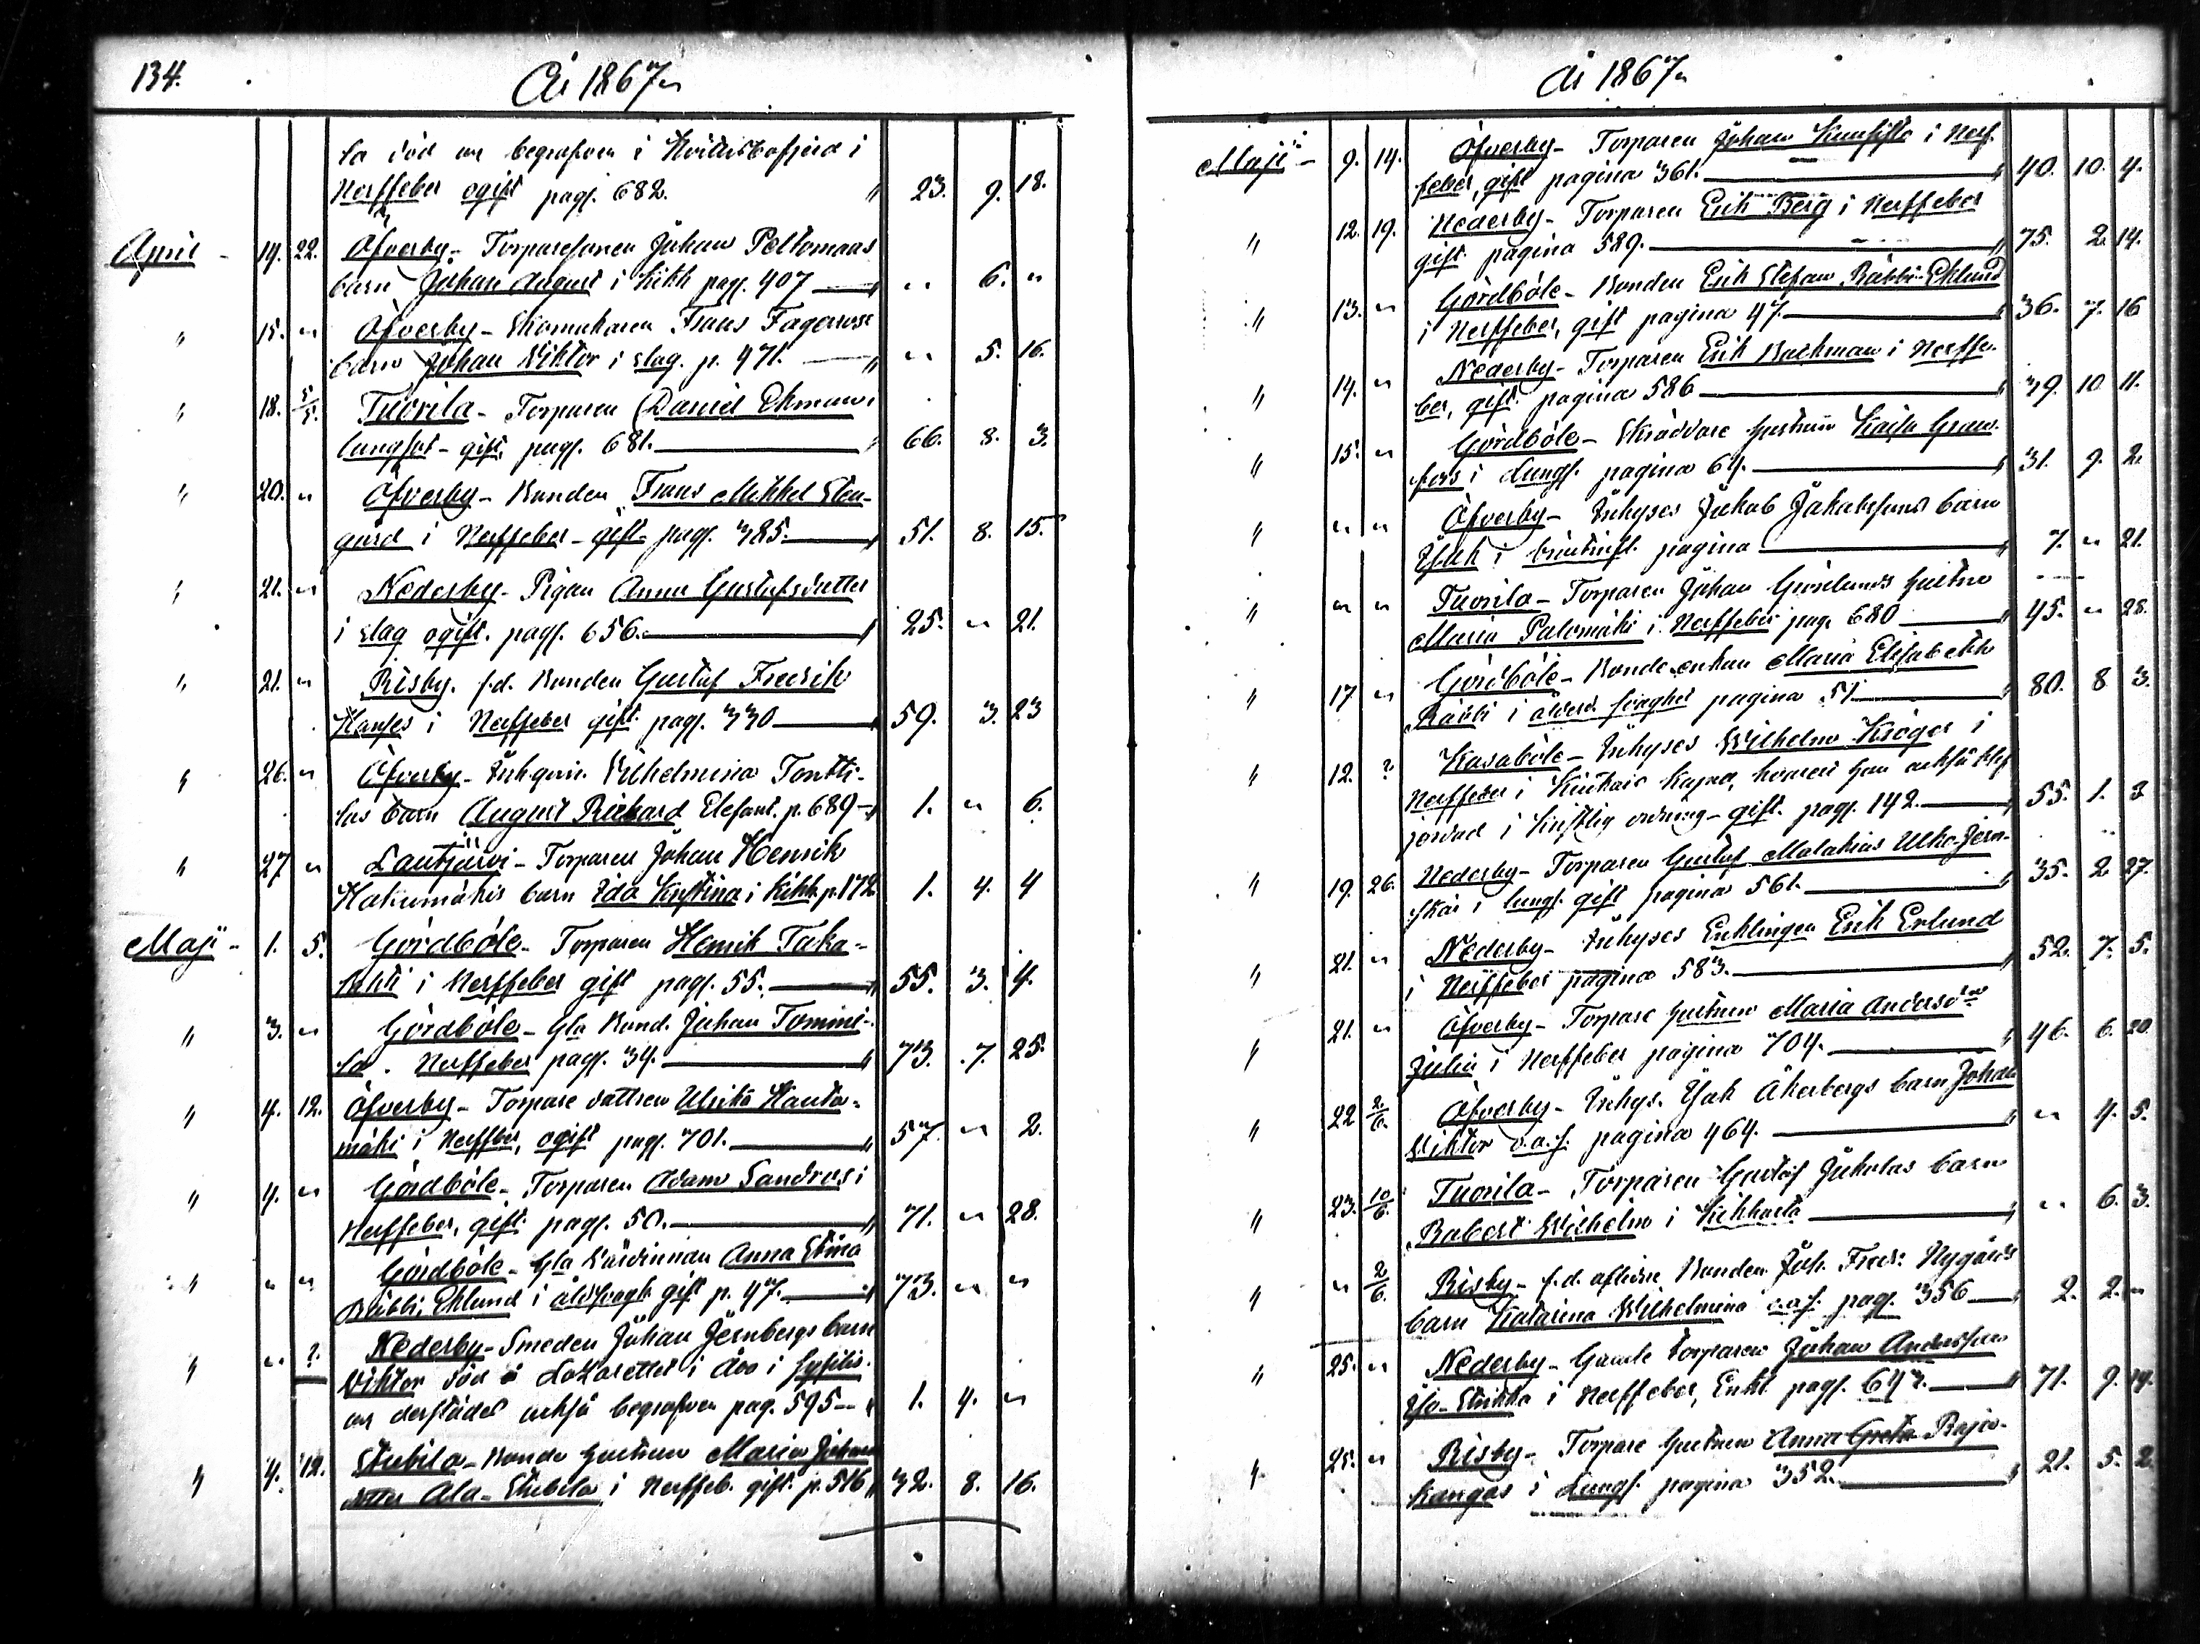 134. År 1867
la död begrafven i
Nerffeber ogift pag. 682. " 23. 9. 18.
April - 14. 22. Öfverby - Torparesonen Johan Peltomaas
barn Johan August i Kikh pag. 407 — " " 6. "
" 15. " Öfverby - Skomakaren Frans Fageroos
barn Johan Wiktor i slag. p. 471. — " " 5. 16.
" 18. 5/5. Tuorila - Torparen Daniel Ekman
lungsot - gift, pag. 681. — " 66. 8. 3.
" 20. " Öfverby - Bonden Frans Mikkel Sten-
gård i Nerffeber - gift - pag. 385. — " 51. 8. 15.
" 21. " Nederby - Pigan Anna Gustafsdotter
i slag ogift. pag. 656. — " 25. " 21.
" 21. " Risby. f.d. Bonden Gustaf Fredrik
Hanses i Nerffeber gift. pag. 330 — " 59. 3. 23
" 26. " Öfverby - Inhyses. Wilhelmina Tontti-
las barn August Rickard Elefant. p. 689 — " 1. " 6.
" 27 " Lautjärvi - Torparen Johan Henrik
Hakumäkis barn Ida Kristina i Kikh. p. 172 1. 4. 4
Maji - 1. 5. Gördböle - Torparen Henrik Taka-
lahti i Nerffeber gift pag. 55. — " 55. 3. 4.
" 3. " Gördböle - Gla Bond. Johan Tommi-
la . Nerffeber pag. 34. — " 73. 7. 25.
" 4. 12. Öfverby - Torpare dottren Ulrika Hauta-
mäki i Nerffber, ogift pag. 701. — " 57. " 2.
" 4. " Gördböle - Torparen Adam Sandros i
Nerffeber, gift. pag. 50. — " 71. " 28.
" " " Gördböle - Gla Värdinnan Anna Stina
Räbbi, Eklund i gift p. 47. — " 73. " "
" " ? Nederby - Smeden Johan Jernbergs barn
Wiktor död i Lazarettet i Åbo i Syfilis.
derstädes också begrafven pag. 595 — " 1. 4. "
" 4. 12. Stubila - Bonde hustrun Maria Johans
dotter Ala - Stubila i Nerffeb. gift. p. 516 " 32. 8. 16.
År 1867
Maji - 9. 14. Öfverby - Torparen Johan i Nerf-
feber, gift pagina 361. — " 40. 10. 4.
" 12. 19. Nederby - Torparen Erik Berg i Nerffeber
gift. pagina 589. — " 75. 2. 14.
" 13. " Gördböle - Bonden Erik Stefan Räbbi-Eklund
i Nerffeber, gift pagina 47. — " 36. 7. 16
" 14. " Nederby - Torparen Erik Backman i Nerffe-
ber, gift. pagina 586 — " 39. 10. 11.
" 15. " Gördböle - Skräddare hustrun Kajsa Gran-
fors i Lungs. pagina 64. — " 31. 9. 2.
" " " Öfverby - Inhyses Jakob Jakobssons barn
Isak i pagina — " 7. " 21.
" " " Tuorila - Torparen Johan Grönlunds hustru
Maria Palomäki i Nerffeber pag. 680 — 45. " 28.
" 17 " Gördböle - Bondeenkan Maria Elisabeth
Räbbi i pagina 51. — " 80. 8. 3.
" 12. ? Kasaböle - Inhyses Wilhelm Kröger i
Nerffeber i hvarest han också blef
jordad i kristlig ordning - gift. pag. 142. — " 55. 1. 3
" 19. 26. Nederby - Torparen Gustaf Malakias Ulko-Jern-
skär i lungs. gift pagina 561. — " 35. 2. 27.
" 21. " Nederby - Inhyses Enklingen Erik Erlund
i Nerffeber pagina 583. — " 52. 7. 5.
" 21. " Öfverby - Torpare hustrun Maria Andersdr
Julia i Nerffeber pagina 704. — " 46. 6. 20.
" 22 2/6. Öfverby - Inhys. Isak Åkerbergs barn Johan
Wiktor o.a.s. pagina 464. — " " 4. 5.
" 23. 10/6. Tuorila - Torparen Gustaf Jukolas barn
Robert Wilhelm i Kikhosta — " " 6. 3.
" " 2/6. Risby - f.d. Bonden Joh. Fredr. Nygårds
barn Katarina Wilhelmina o.a.s. pag. 356 — " 2. 2. "
" 25. " Nederby - Gamle torparen Johan Andersson
Iso-Stukko i Nerffeber, Enkl. pag. 643. — " 71. 9. 14.
" 25. " Risby - Torpare hustrun Anna Greta Rajo-
kangas i Lungs. pagina 352. — " 21. 5. 2